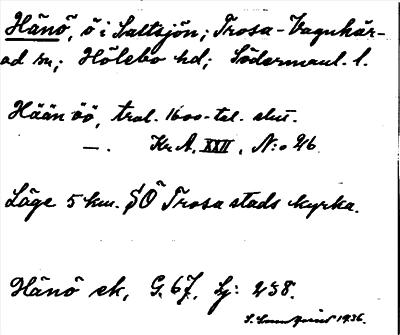 Hänö, ö i Saltsjön; Trosa-Vagnhär-
ad sn; Hölebo hd; Södermanl. l.
Häänöö, trol. 1600-tal. slut.
—. Kr. A. XXII, N:o 26.
Läge 5 km. SÖ Trosa stads kyrka.
Hänö ek, G. 67, Lj: 258.
1936.